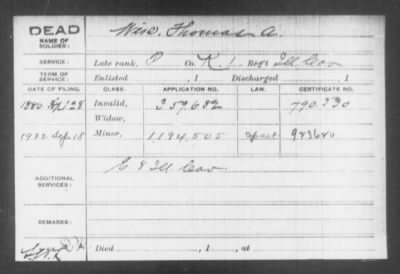 DEAD
NAME OF SOLDIER: Wise, Thomas A.
SERVICE: Late rank, P Co. K, 1 Reg't Ill. Cav
TERM OF SERVICE: Enlisted , 1 Discharged , 1
DATE OF FILING. CLASS. APPLICATION NO. LAW. CERTIFICATE NO.
1880 Apr 28 Invalid, 359,682 790.330
Widow,
1922 Sep 18 Minor, 1,194,505 983680
ADDITIONAL SERVICES: Ill. Cav
REMARKS:
Died , 1 , at